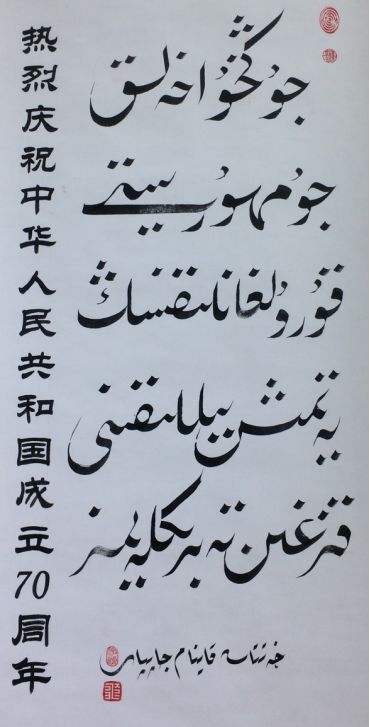 جۇڭخۇا خەلق
جۇمھۇرىيىتى
قۇرۇلغانلىقىنىڭ
يەتمىش يىللىقىنى
قىزغىن تەبرىكلەيمىز
خەتتات قاينام جاپپار
热烈庆祝中华人民共和国成立70周年